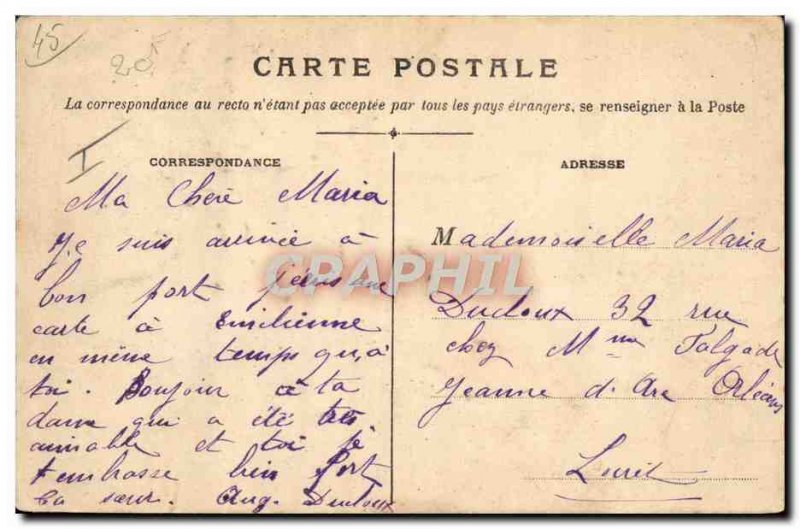 45
20
CARTE POSTALE
La correspondance au recto n'étant pas acceptée par tous les pays étrangers, se renseigner à la Poste
I
CORRESPONDANCE
Ma Chère Maria
Je suis arrivée à
bon port j'écris une
carte à Emilienne
en même temps qu'à
toi. Bonjour à ta
dame qui a été très
aimable et toi je
t'embrasse bien fort
ta sœur. Aug. Ducloux
CPARPHIL
ADRESSE
Mademoiselle Maria
Ducloux 32 rue
chez Mme Falgade
Jeanne d'Arc Orléans
Loiret